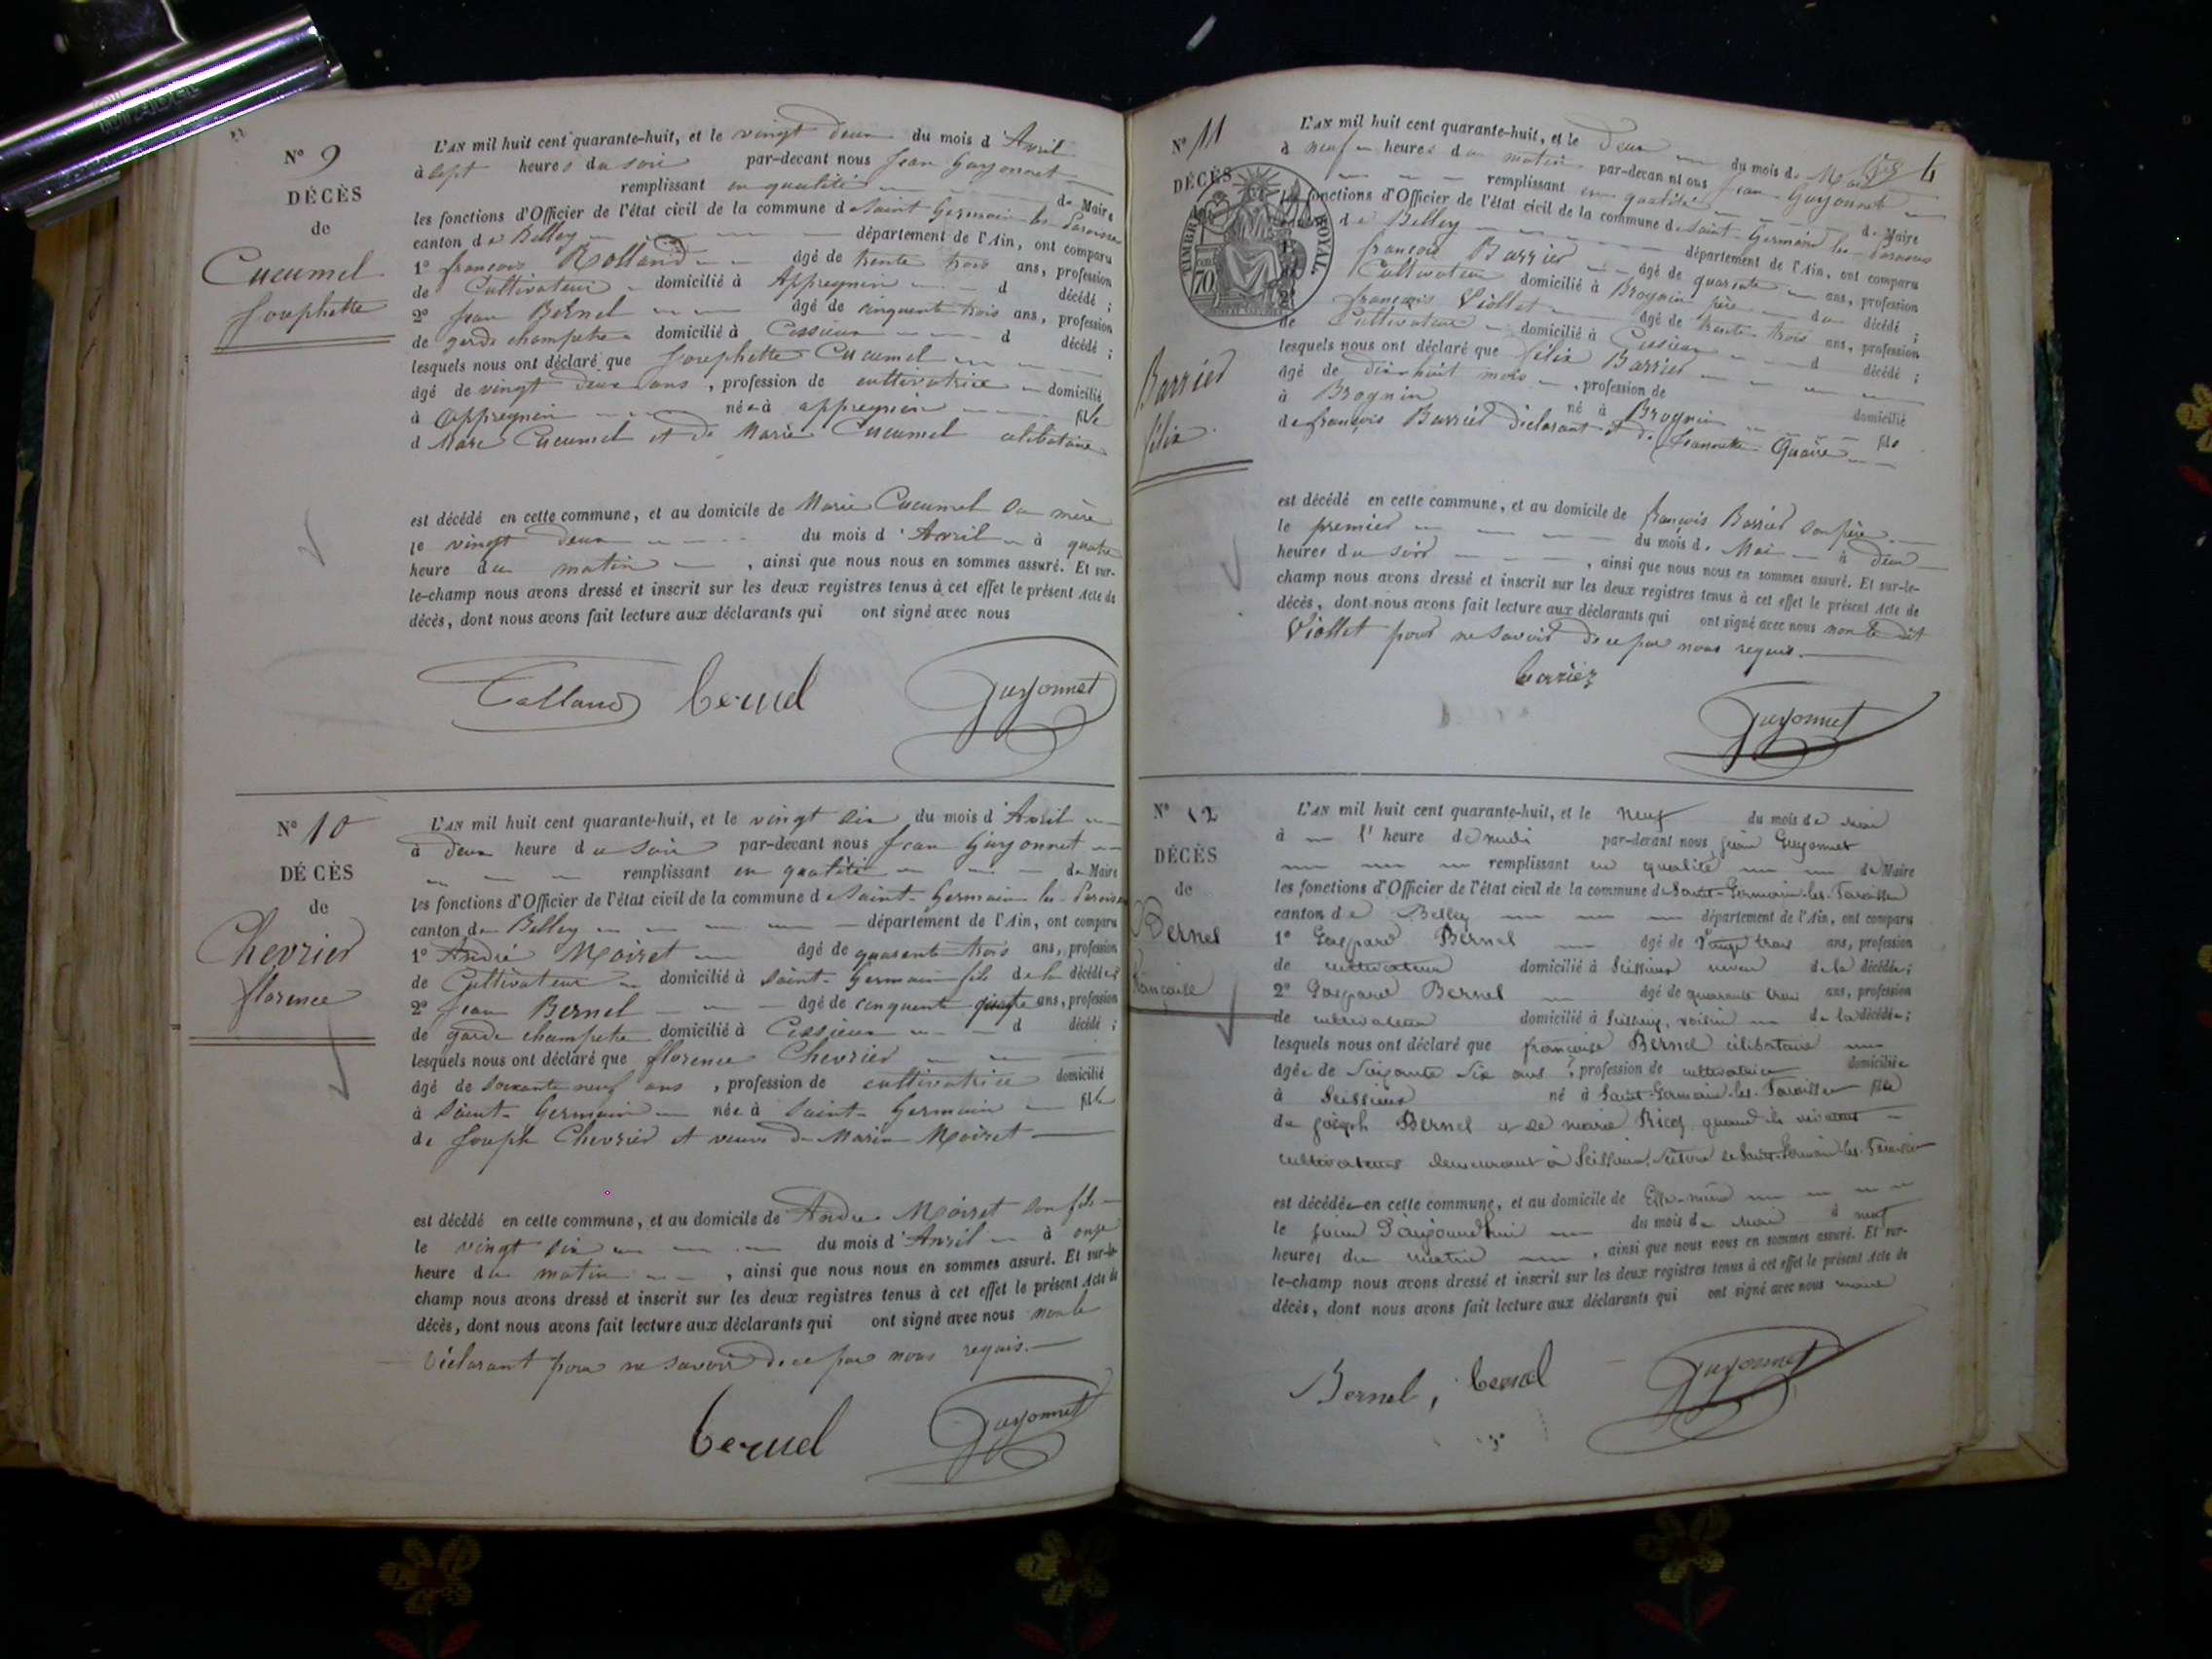 N° 9
DÉCÈS
de
Cucumel
Josephette
L'AN mil huit cent quarante-huit, et le vingt deux du mois d'Avril
à sept heures du soir par-devant nous Jean Guyonnet
remplissant en qualité de Maire
les fonctions d'Officier de l'état civil de la commune de Saint Germain les Paroisses
canton de Belley département de l'Ain, ont comparu
1° françois Rolland âgé de trente trois ans, profession
de Cultivateur domicilié à Appregnin d décédé ;
2° Jean Bernel âgé de cinquante trois ans, profession
de garde champetre domicilié à Cessieux d décédé ;
lesquels nous ont déclaré que Josephette Cucumel
âgé de vingt deux ans, profession de cultivatrice domicilié
à Appregnin née à appregnin fille
d Marc Cucumel et de Marie Cucumel celibataire
est décédé en cette commune, et au domicile de Marie Cucumel sa mère
le vingt deux du mois d'Avril à quatre
heure du matin, ainsi que nous nous en sommes assuré. Et sur-
le-champ nous avons dressé et inscrit sur les deux registres tenus à cet effet le présent Acte de
décès, dont nous avons fait lecture aux déclarants qui ont signé avec nous
bernel Guyonnet
N° 10
DÉCÈS
de
Chevrier
florence
L'AN mil huit cent quarante-huit, et le vingt six du mois d'Avril
à deux heure du soir par-devant nous Jean Guyonnet
remplissant en qualité de Maire
les fonctions d'Officier de l'état civil de la commune de Saint-Germain les Paroisses
canton de Belley département de l'Ain, ont comparu
1° André Moiret âgé de quarante trois ans, profession
de Cultivateur domicilié à Saint-Germain fils de la décédée ;
2° Jean Bernel âgé de cinquante quatre ans, profession
de garde champetre domicilié à Cessieux d décédé ;
lesquels nous ont déclaré que florence Chevrier
âgé de soixante neuf ans, profession de cultivatrice domicilié
à Saint-Germain née à Saint-Germain fille
de Joseph Chevrier et veuve de Marin Moiret
est décédé en cette commune, et au domicile de André Moiret son fils
le vingt six du mois d'Avril à onze
heure du matin, ainsi que nous nous en sommes assuré. Et sur-le-
champ nous avons dressé et inscrit sur les deux registres tenus à cet effet le présent Acte de
décès, dont nous avons fait lecture aux déclarants qui ont signé avec nous non le
déclarant pour ne savoir de ce par nous requis.
bernel Guyonnet
4
N° 11
DÉCÈS
TIMBRE ROYAL
70
Barrier
félix
L'AN mil huit cent quarante-huit, et le deux du mois de Mai
à neuf heures du matin par-devant nous Jean Guyonnet
remplissant en qualité de Maire
les fonctions d'Officier de l'état civil de la commune de Saint-Germain les-Paroisses
de Belley département de l'Ain, ont comparu
françois Barrier âgé de quarante ans, profession
Cultivateur domicilié à Brognin père du décédé ;
2° françois Viollet âgé de trente trois ans, profession
de Cultivateur domicilié à Cessieux d décédé ;
lesquels nous ont déclaré que félix Barrier
âgé de dix huit mois, profession de domicilié
à Brognin né à Brognin fils
de françois Barrier déclarant et de Jeannette
est décédé en cette commune, et au domicile de françois Barrier son père
le premier du mois de Mai à deux
heures du soir, ainsi que nous nous en sommes assuré. Et sur-le-
champ nous avons dressé et inscrit sur les deux registres tenus à cet effet le présent Acte de
décès, dont nous avons fait lecture aux déclarants qui ont signé avec nous non le dit
Viollet pour ne savoir de ce par nous requis.
barriez
Guyonnet
N° 12
DÉCÈS
de
Bernel
francoise
L'AN mil huit cent quarante-huit, et le neuf du mois de mai
à l'heure de midi par-devant nous jean Guyonnet
remplissant en qualité de Maire
les fonctions d'Officier de l'état civil de la commune de Saint-Germain-les-Paroisses
canton de Belley département de l'Ain, ont comparu
1° Gaspard Bernel âgé de vingt trois ans, profession
de cultivateur domicilié à Seissieux neveu de la décédée ;
2° Gaspard Bernel âgé de quarante trois ans, profession
de cultivateur domicilié à voisin de la décédée ;
lesquels nous ont déclaré que françoise Bernel célibataire
âgée de soixante six ans, profession de cultivatrice domiciliée
à Seissieux né à Saint-Germain-les-Paroisses fille
de joseph Bernel et de marie quand ils vivaient
cultivateurs demeurant à Seissieux, section de Saint-Germain-les-Paroisses
est décédée en cette commune, et au domicile de Elle-même
le jour d'aujourd'hui du mois de Mai à neuf
heures du matin, ainsi que nous nous en sommes assuré. Et sur-
le-champ nous avons dressé et inscrit sur les deux registres tenus à cet effet le présent Acte de
décès, dont nous avons fait lecture aux déclarants qui ont signé avec nous maire
Bernel, bernel Guyonnet